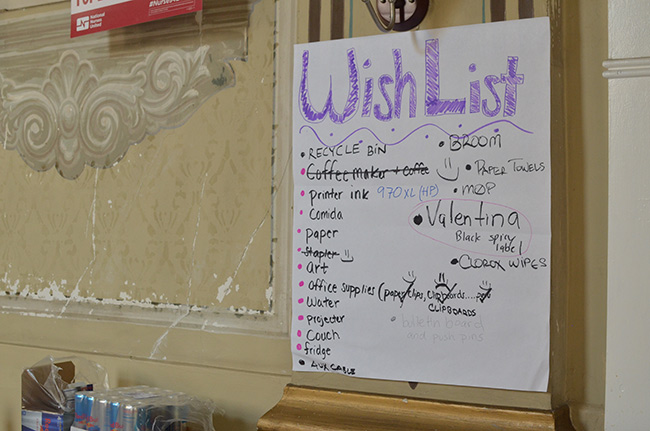 Wish List
• RECYCLE BIN
• Coffee maker + coffee
• printer ink 970XL (HP)
• Comida
• paper
• Stapler
• art
• Office supplies (paper clips, clipboards....
CLIPBOARDS
• Water
• projecter
• Couch
• fridge
• AUX CABLE
• BROOM
• PAPER TOWELS
• MOP
• Valentina
Black spicy
label
• CLOROX WIPES
• bulletin board
and push pins
National
Nurses
United